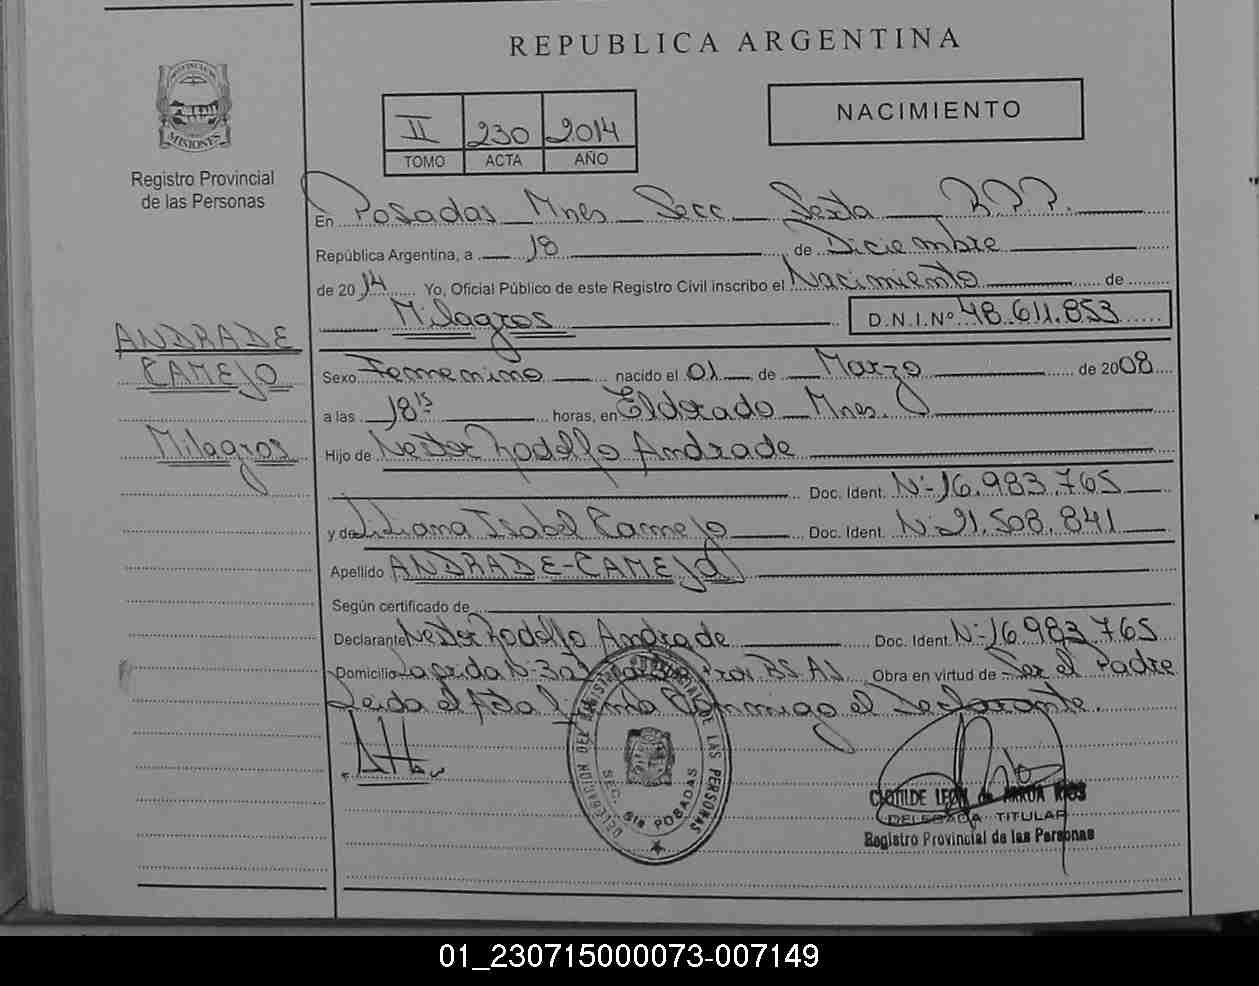 REPUBLICA ARGENTINA
PROVINCIA DE
MISIONES
Registro Provincial
de las Personas
II 230 2014
TOMO ACTA AÑO
NACIMIENTO
En Posadas Mnes Secc Sexta R.P.P.
República Argentina, a 18 de Diciembre
de 2014 Yo, Oficial Público de este Registro Civil inscribo el Nacimiento de
Milagros D.N.I.Nº 48.611.853
ANDRADE
CAMEJO
Milagros
Sexo Femenino nacido el 01 de Marzo de 2008
a las 18 15 horas, en Eldorado Mnes.
Hijo de Nestor Rodolfo Andrade
Doc. Ident. Nº 16.983.765
y de Liliana Isabel Camejo Doc. Ident. Nº 21.508.841
Apellido ANDRADE-CAMEJO
Según certificado de
Declarante Nestor Rodolfo Andrade Doc. Ident. Nº 16.983.765
Domicilio Laprida Nº BS.AS Obra en virtud de Ser el Padre
Leida el Acta firma Conmigo el Declarante.
DELEGACION DEL REGISTRO PROVINCIAL DE LAS PERSONAS
SEC. 6ta POSADAS
CLOTILDE LEON de ARRUA RIOS
DELEGADA TITULAR
Registro Provincial de las Personas
01_230715000073-007149